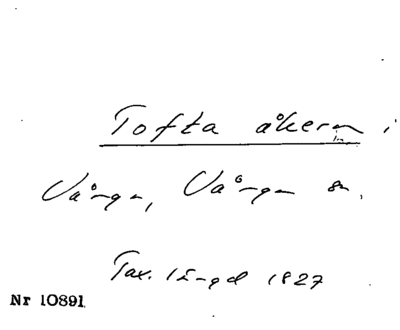 Tofta åkern i
Vånga, Vånga sn.
Tax. längd 1827
Nr 10891